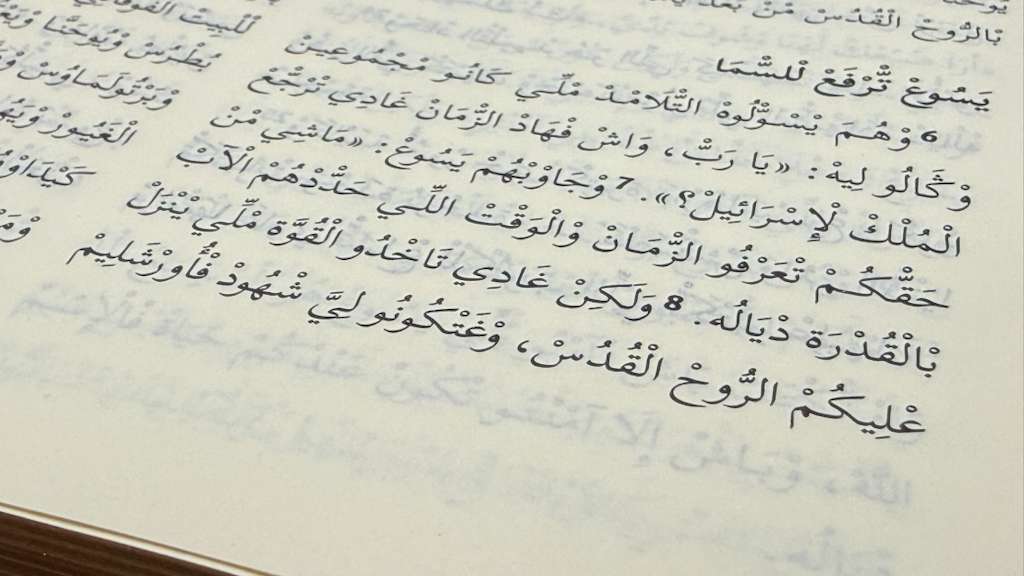 بْالرُّوحْ الْقُدُسْ مْنْ بَعْدْ
يَسُوعْ تّْرْفَعْ لْلسّْمَا
6 وْهُمَ يْسْوّْلُوهْ التّْلَامْدْ مْلّْي كَانُو مْجْمُوعِينْ
وْڭَالُو لِيهْ: «يَا رَبّْ، وَاشْ فْهَادْ الزّْمَانْ غَادِي تْرْجّْعْ
الْمُلْكْ لْإِسْرَائِيلْ؟». 7 وْجَاوْبْهُمْ يَسُوعْ: «مَاشِي مْنْ
حَقّْكُمْ تْعَرْفُو الزّْمَانْ وْالْوَقْتْ اللِّي حَدّْدْهُمْ الْآبْ
بْالْقُدْرَة دْيَالُه. 8 وَلَكِنْ غَادِي تَاخْدُو الْقُوَّة مْلّْي يْنْزَلْ
عْلِيكُمْ الرُّوحْ الْقُدُسْ، وْغَتْكُونُو لِيَّ شْهُودْ فْأُورْشَلِيمْ
بُطْرُسْ وْيُوحَنَّا
وْبَرْتُولَمَاوُسْ
الْغَيُورْ